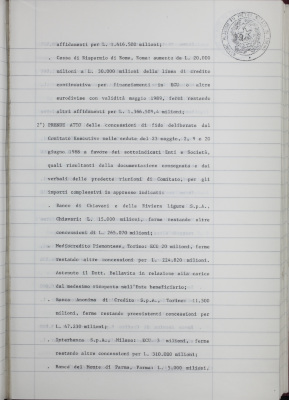 affidamenti per L. 1.410.580 milioni;
. Cassa di Risparmio di Roma, Roma: aumento da L. 20.000
milioni a L. 30.000 milioni della linea di credito
continuativa per finanziamenti in ECU o altre
eurodivise con validità maggio 1989, fermi restando
altri affidamenti per L. 1.366.509,4 milioni;
2°) PRENDE ATTO delle concessioni di fido deliberate dal
Comitato Esecutivo nelle sedute del 25 maggio, 2, 9 e
giugno 1988 a favore dei sottoindicati Enti e Società,
quali risultanti dalla documentazione consegnata e dai
verbali delle predette riunioni di Comitato, per gli
importi complessivi in appresso indicati:
. Banco di Chiavari e della Riviera Ligure S.p.A.,
Chiavari: L. 15.000 milioni, ferme restando altre
concessioni di L. 265.070 milioni;
. Mediocredito Piemontese, Torino: ECU 20 milioni, ferme
restando altre concessioni per L. 224.820 milioni.
Astenuto il Dott. Bellavita in relazione alla carica
dal medesimo ricoperta nell'Ente beneficiario;
. Banca Anonima di Credito S.p.A., Torino: 11.500
milioni, ferme restando preesistenti concessioni per
L. 47.230 milioni;
. Interbanca S.p.A., Milano: ECU 5 milioni, ferme
restando altre concessioni per L. 310.580 milioni;
. Banca del Monte di Parma, Parma: L. 5.000 milioni,